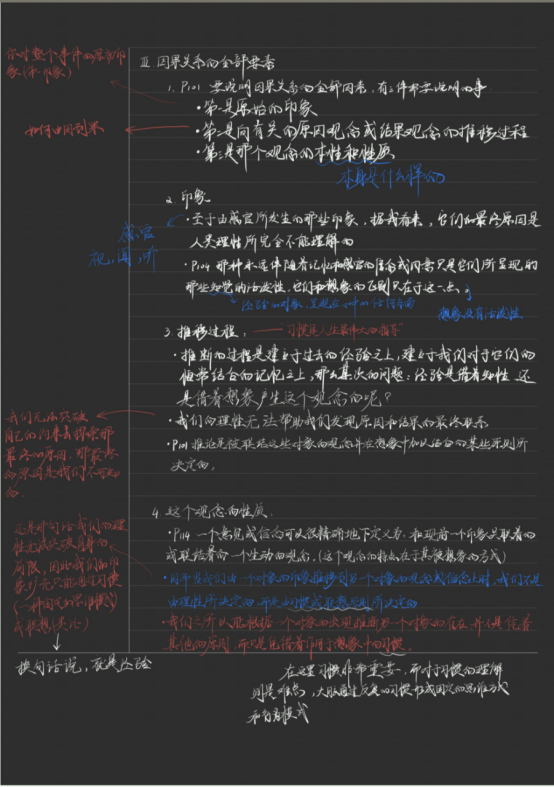 针对整个事件的原初印象(和印象)
Ⅲ 因果关系的全部要素
1. P101 要说明因果关系的全部因素,有三件事要说明的事
•第一是原始的印象
如何由因到果
•第二是向有关的原因观念或结果观念的推移过程
•第三是那个观念的本性和性质
本身是什么样的
2. 印象
•至于由感官所发生的那些印象,据我看来,它们的最终原因是
人类理性所完全不能理解的
感官
视,闻,听
•P104 那种永远伴随着记忆和感官的信念或同意只是它们所呈现的
那些知觉的活泼性,它们和想象的区别只在于这一点,
经验的对象,呈现在心中的
想象没有活泼性
3. 推移过程,
习惯是人生最伟大的指导"
•推断的过程是建立于过去的经验之上,建立于我们对于它们的
恒常结合的记忆之上,那么其次的问题:经验是借着知性,还
是借着想象产生这个观念的呢?
我们无法突破
自己的
最终的原因,那最终
的原因是我们不可知
的,
•我们的理性无法帮助我们发现原因和结果的最终联系
•P101 推论是被联结这些对象的观念并在想象中加以结合的某些原则所
决定的,
4. 这个观念的性质,
•P114 一个意见或信念可以很精确地下定义为:和现前一个印象关联着的
或联结着的一个生动的观念,(这个观念的特点在于其被想象的方式)
还是那句话我们的理
性无法突破自身的
局限,因此我们的印
象,
(一种固定的思维模式)
或联想(类比)
•因此当我们由一个对象的印象推移到另一个对象的观念或信念上时,我们不是
由理性所决定的,而是由习惯或联想原则所决定的
•我们之所以能根据一个对象的出现推断另一个对象的存在,并不是凭着
其他的原则,而只是凭借着作用于想象中的习惯,
换句话说,就是经验
在这里习惯非常重要,而对于习惯的理解
则是难点,大脑通过反复的习惯形成固定的思维方式
和行为模式